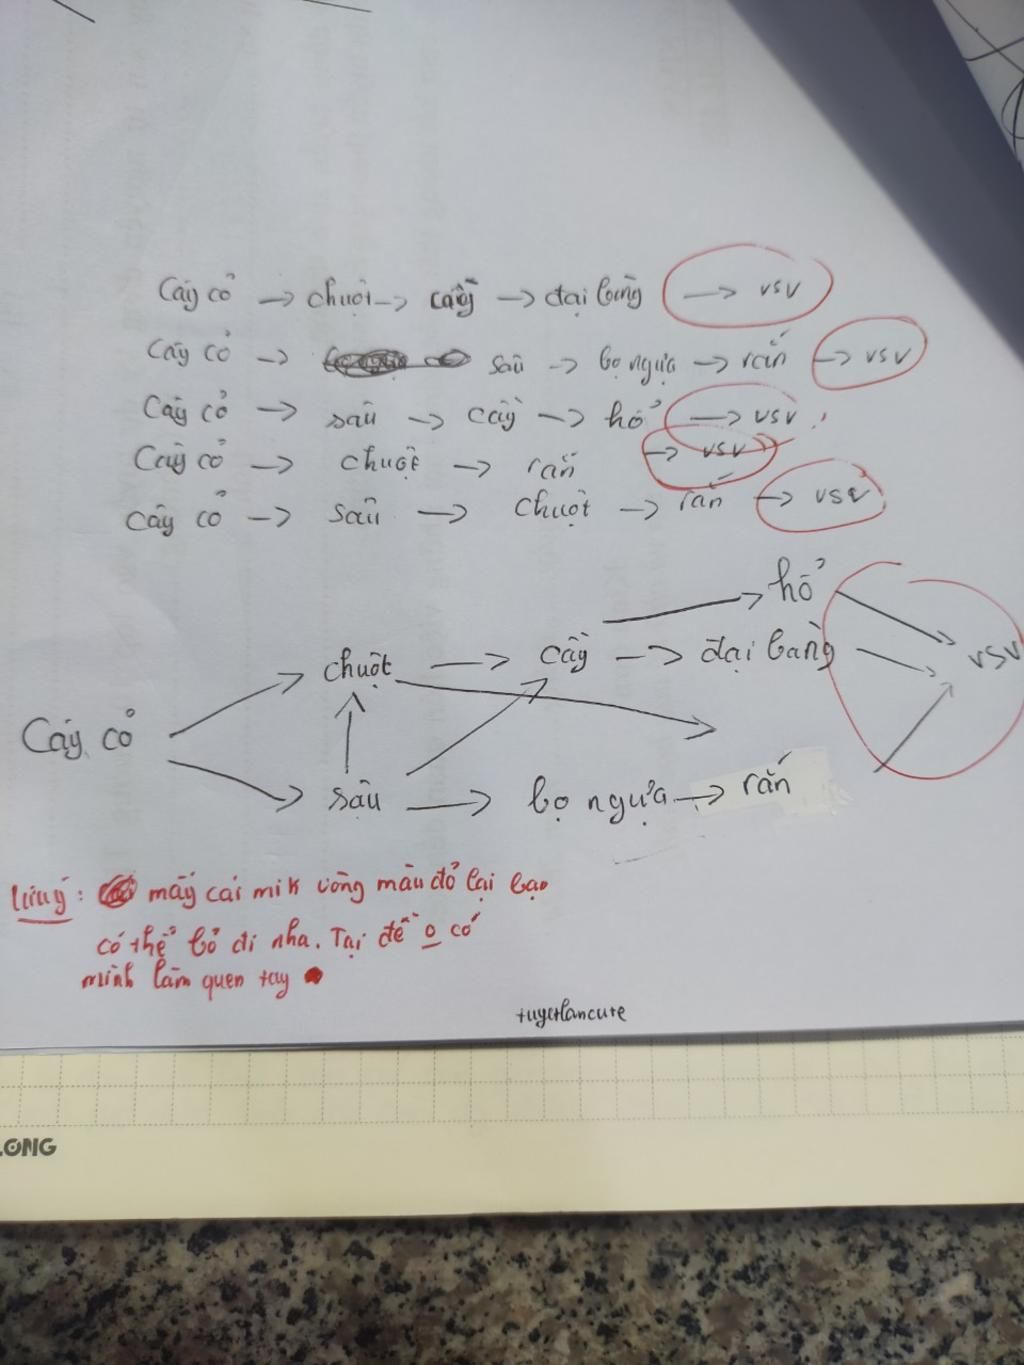 Cây cỏ → chuột → cầy → đại bàng → vsv
Cây cỏ → sâu → bọ ngựa → rắn → vsv
Cây cỏ → sâu → cầy → hổ → vsv
Cây cỏ → chuột → rắn → vsv
Cây cỏ → sâu → chuột → rắn → vsv
hổ
chuột → cầy → đại bàng
vsv
Cây cỏ
sâu → bọ ngựa → rắn
Lưu ý: mấy cái mik vòng màu đỏ lại bạn
có thể bỏ đi nha. Tại đề o có
mình làm quen tay
tuyetlancute
LONG